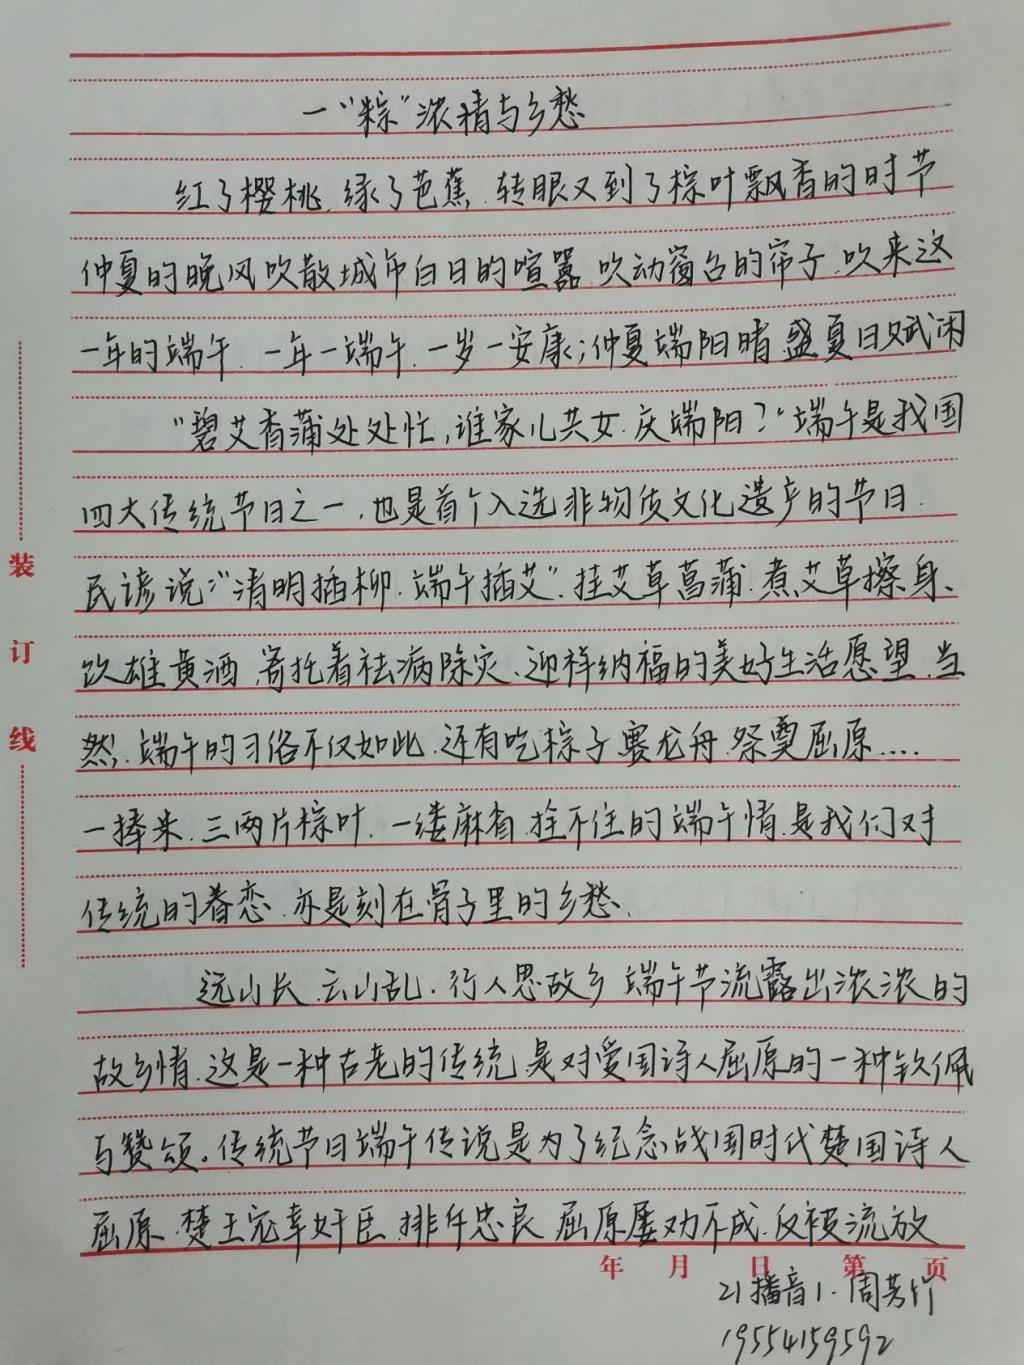 一“粽”浓情与乡愁
红了樱桃,绿了芭蕉,转眼又到了棕叶飘香的时节
仲夏的晚风吹散城市白日的喧嚣,吹动窗台的帘子,吹来这
一年的端午.一年一端午,一岁一安康;仲夏端阳晴,盛夏日斌闲
“碧艾香蒲处处忙,谁家儿共女,庆端阳?”端午是我国
四大传统节日之一,也是首个入选非物质文化遗产的节日.
民谚说:“清明插柳,端午插艾”.挂艾草菖蒲.煮艾草擦身、
饮雄黄酒,寄托着祛病除灾、迎祥纳福的美好生活愿望.当
然,端午的习俗不仅如此,还有吃棕子,赛龙舟,祭奠屈原....
一捧米,三两片棕叶,一缕麻香,拴不住的端午情,是我们对
传统的眷恋,亦是刻在骨子里的乡愁.
远山长,云山乱,行人思故乡,端午节流露出浓浓的
故乡情.这是一种古老的传统,是对爱国诗人屈原的一种钦佩
与赞颂。传统节日端午传说是为了纪念战国时代楚国诗人
屈原.楚王宠幸奸臣,排斥忠良,屈原屡劝不成,反被流放
装
订
线
年 月 日 第 页
21播音1.周芳竹
19554159592